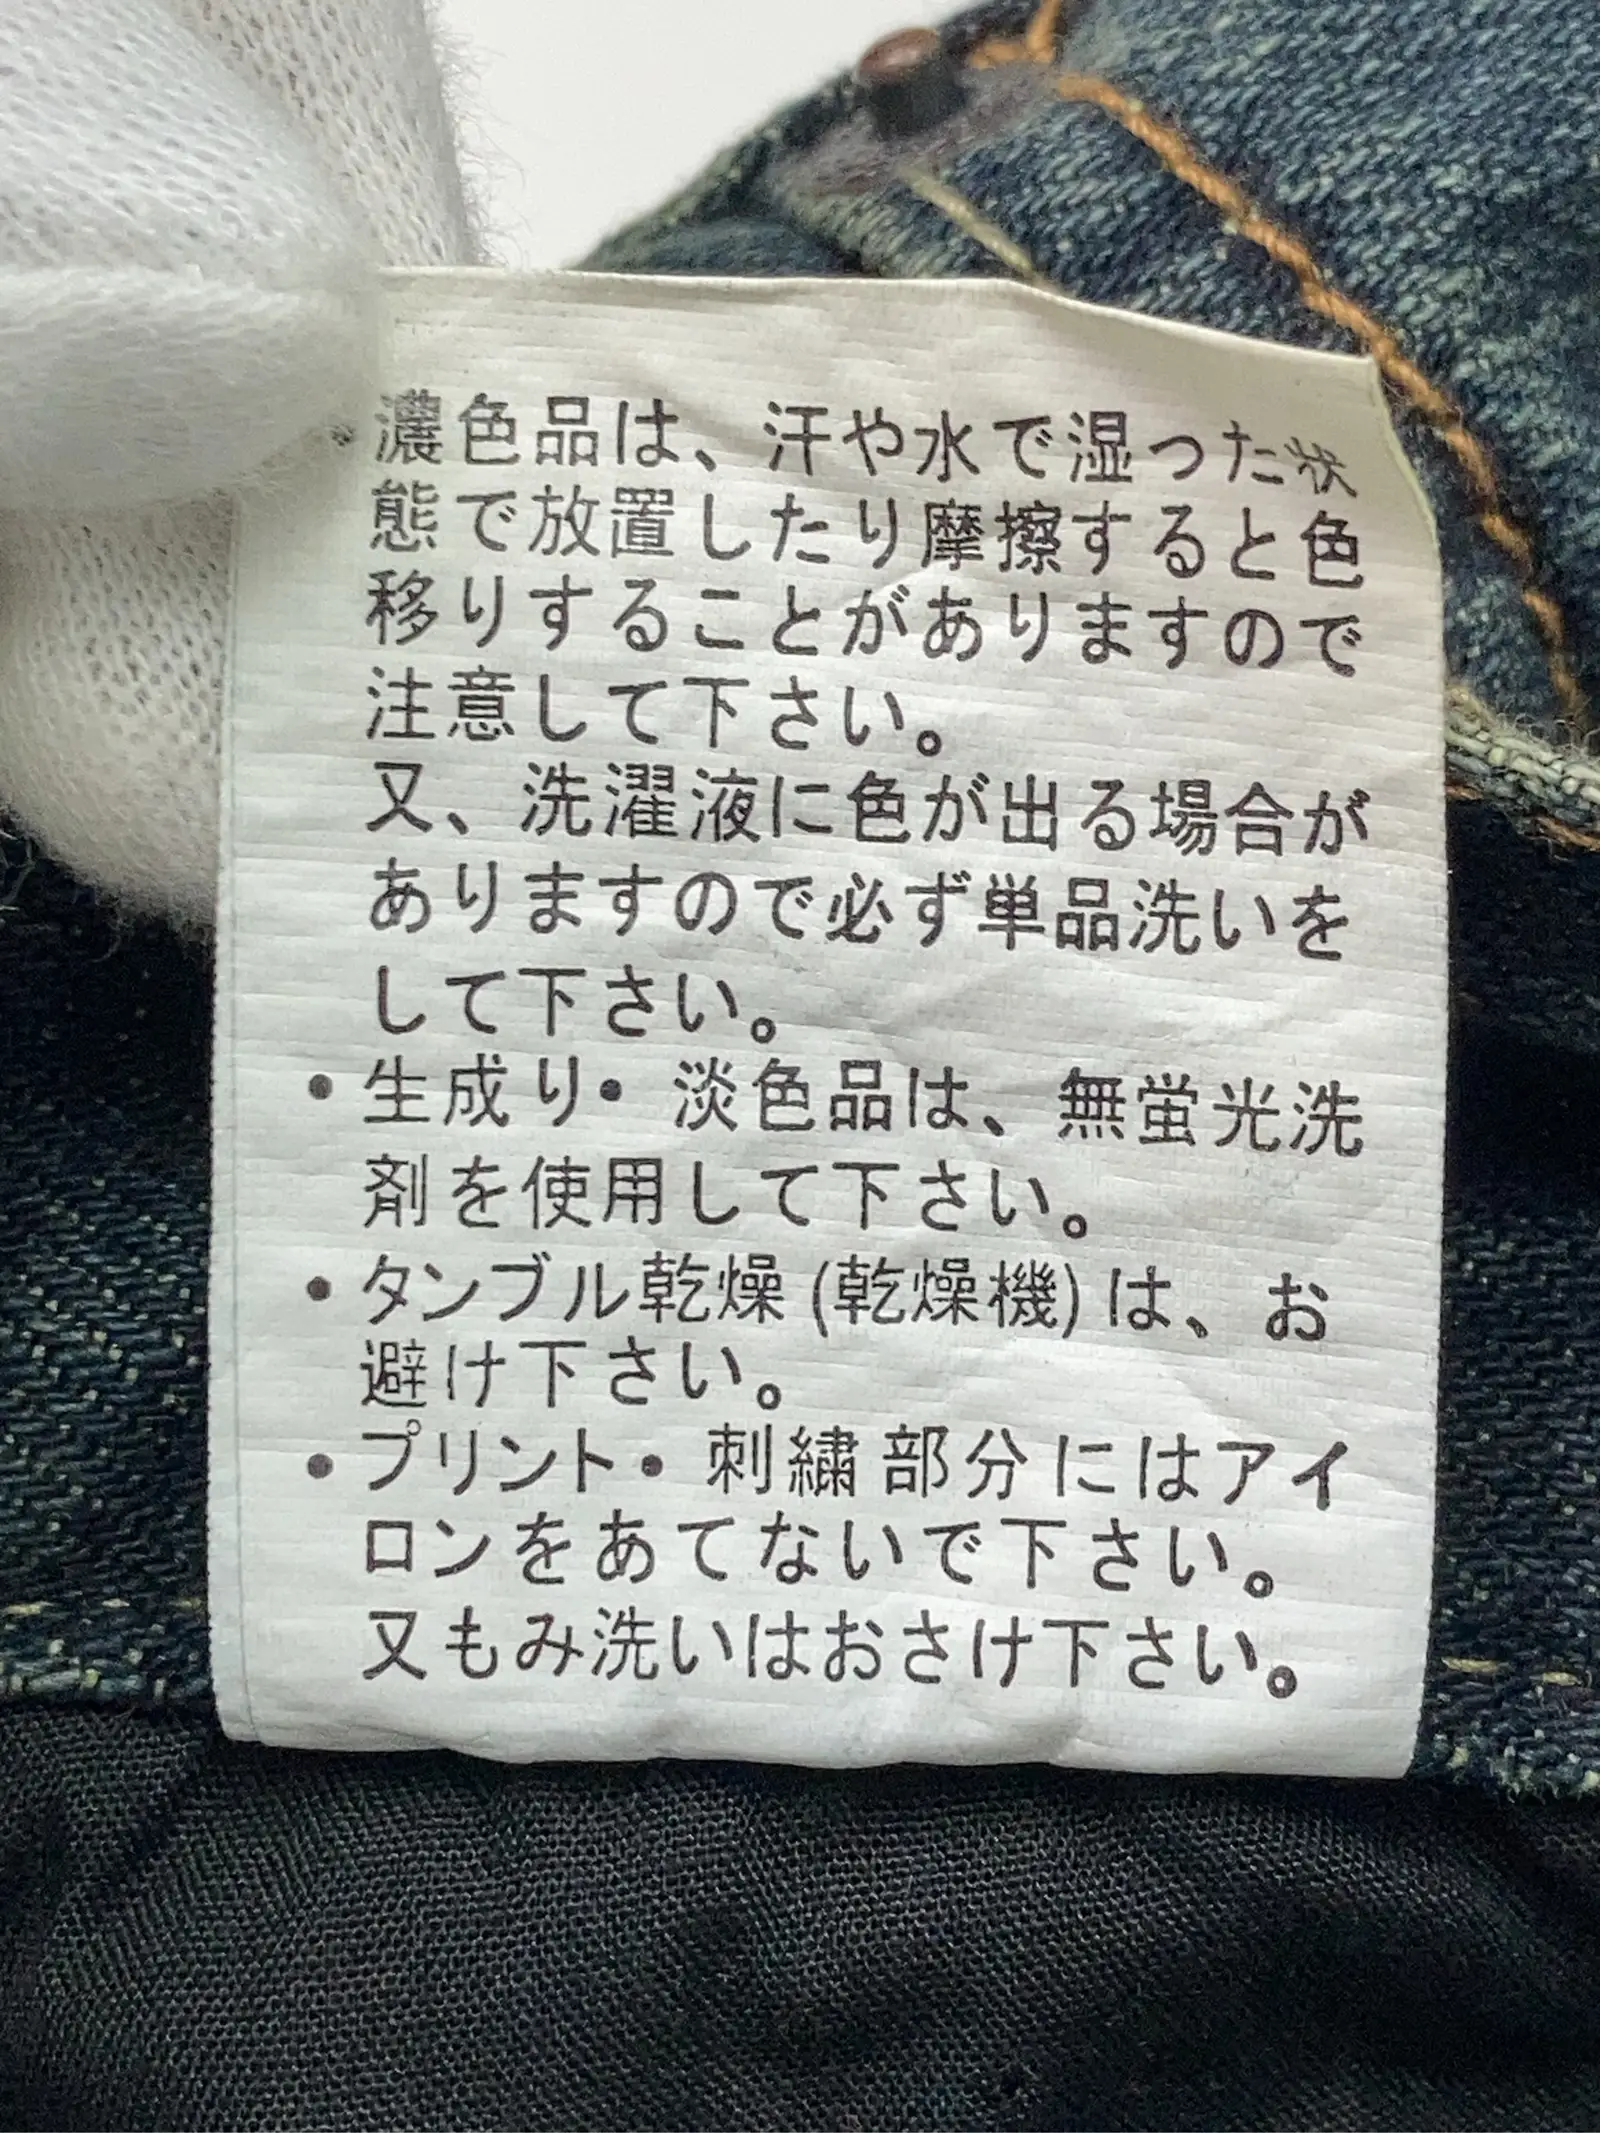 濃色品は、汗や水で湿った状
態で放置したり摩擦すると色
移りすることがありますので
注意して下さい。
又、洗濯液に色が出る場合が
ありますので必ず単品洗いを
して下さい。
・生成り・淡色品は、無蛍光洗
剤を使用して下さい。
・タンブル乾燥(乾燥機)は、お
避け下さい。
・プリント・刺繍部分にはアイ
ロンをあてないで下さい。
又もみ洗いはおさけ下さい。